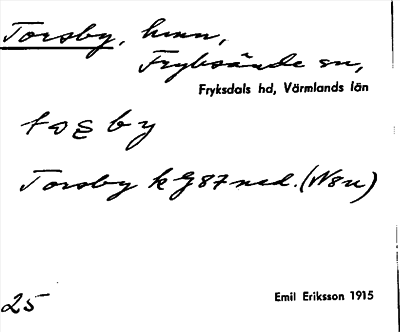 Torsby, hmn,
Fryksände sn,
Fryksdals hd, Värmlands län
Torsby k G87 ned. (N8u)
25
Emil Eriksson 1915